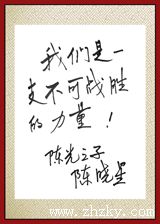 我们是一
支不可战胜
的力量！
陈光之子
陈晓星
www.zhzky.com